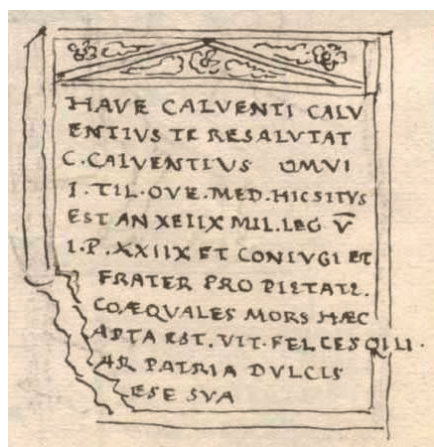 HAVE CALVENTI CALV
ENTIVS TE RESALVTAT
C. CALVENTIVS OMVI
I. TIL. OVE. MED. HIC SITVS
EST AN XEIIX MIL. LEG V̅
I. P. XXIIX ET CONIVGI ET
FRATER PRO PIETATE.
COÆQVALES MORS HÆC
APTA EST. VIT. FELCES QILI.
AR PATRIA DVLCIS
ESE SVA